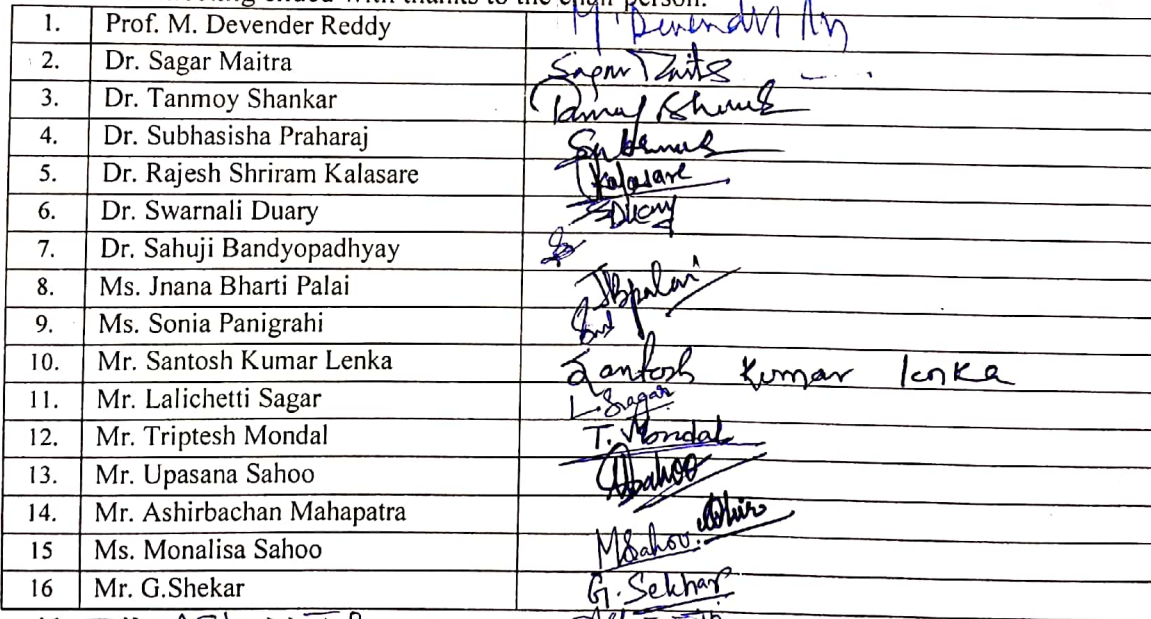 meeting ended with thanks to the chair person.
1. Prof. M. Devender Reddy M. Devender
2. Dr. Sagar Maitra Sagar Maitra
3. Dr. Tanmoy Shankar
4. Dr. Subhasisha Praharaj
5. Dr. Rajesh Shriram Kalasare Kalasare
6. Dr. Swarnali Duary SDuary
7. Dr. Sahuji Bandyopadhyay
8. Ms. Jnana Bharti Palai JBpalai
9. Ms. Sonia Panigrahi
10. Mr. Santosh Kumar Lenka Santosh Kumar lenka
11. Mr. Lalichetti Sagar L. Sagar
12. Mr. Triptesh Mondal T. Mondal
13. Mr. Upasana Sahoo USahoo
14. Mr. Ashirbachan Mahapatra
15 Ms. Monalisa Sahoo MSahoo
16 Mr. G.Shekar G. Sekhar